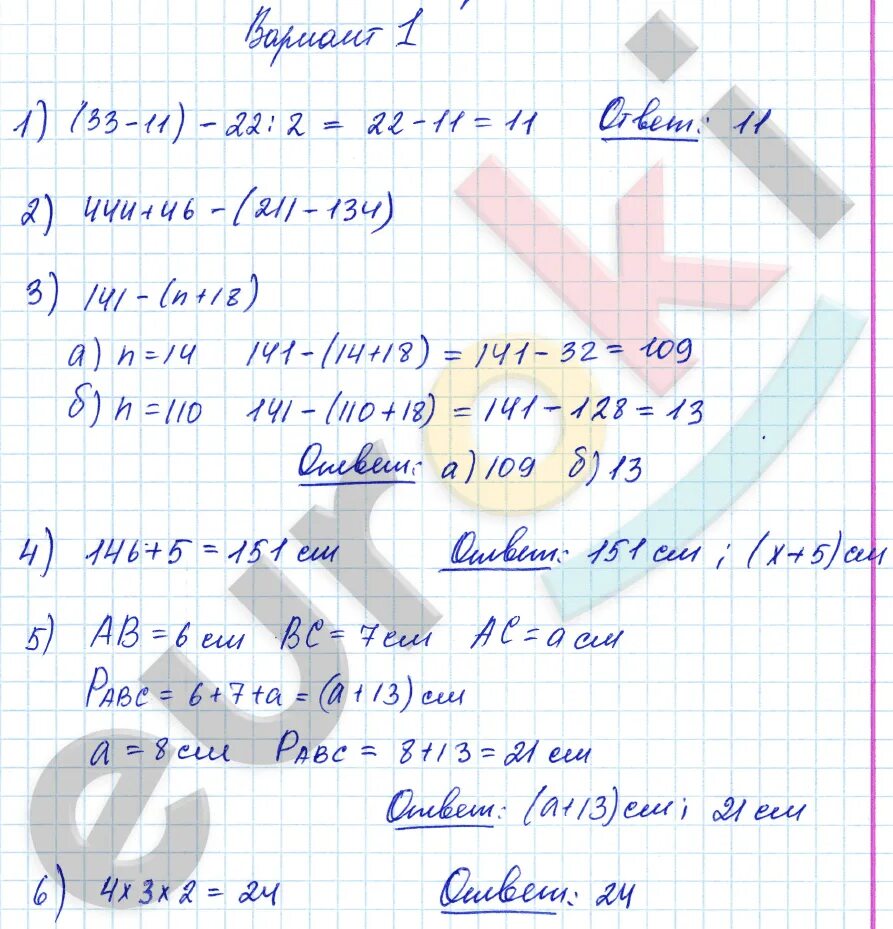 Вариант 1
1) (33-11) - 22:2 = 22-11 = 11 Ответ: 11
2) 444+46 - (211-134)
3) 141 - (n+18)
а) n=14 141-(14+18) = 141-32 = 109
б) n=110 141-(110+18) = 141-128 = 13
Ответ: а) 109 б) 13
4) 146+5 = 151 см Ответ: 151 см; (x+5) см
5) AB = 6 см BC = 7 см AC = a см
PABC = 6+7+a = (a+13) см
a = 8 см PABC = 8+13 = 21 см
Ответ: (a+13) см; 21 см
6) 4x3x2 = 24 Ответ: 24
euroki